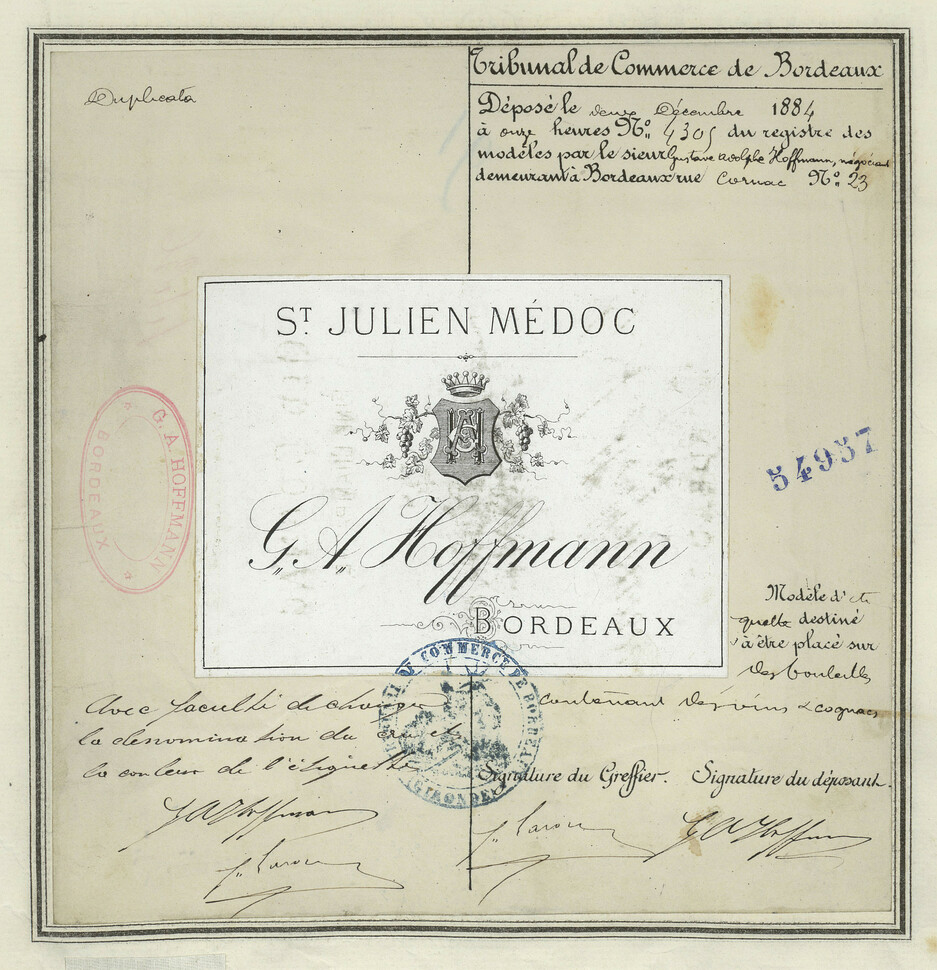 Duplicata
Tribunal de Commerce de Bordeaux
Déposé le deux Décembre 1884
à onze heures Nº. 4305 du registre des
modèles par le sieur Gustave Adolphe Hoffmann, négociant
demeurant à Bordeaux rue Cornac Nº. 23
ST JULIEN MÉDOC
G. A. Hoffmann
BORDEAUX
G. A. HOFFMANN
BORDEAUX
54957
Modèle d'éti
quette destiné
à être placé sur
des bouteilles
contenant des vins & cognacs
Avec faculté de changer
la dénomination du cru et
la couleur de l'étiquette
COMMERCE DE BORDEAUX
GIRONDE
Signature du Greffier. Signature du déposant.
G A Hoffmann
G A Hoffmann